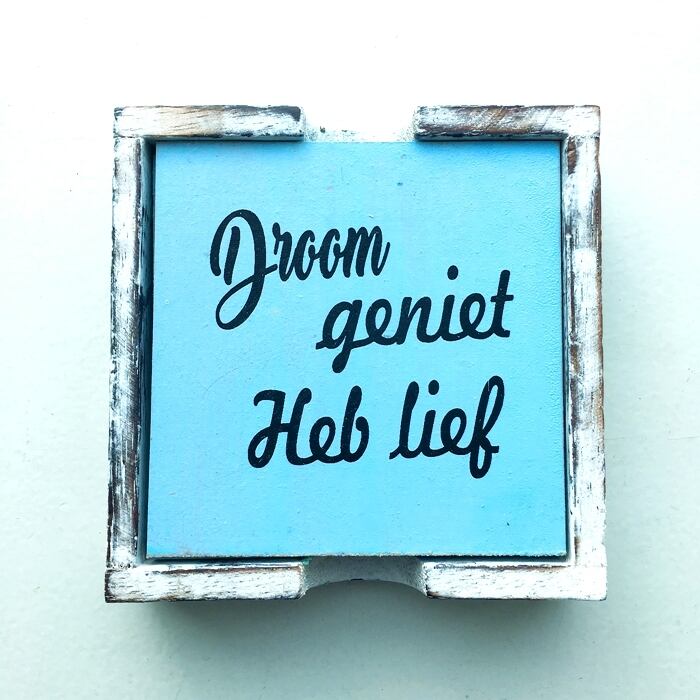 Droom
geniet
Heb lief